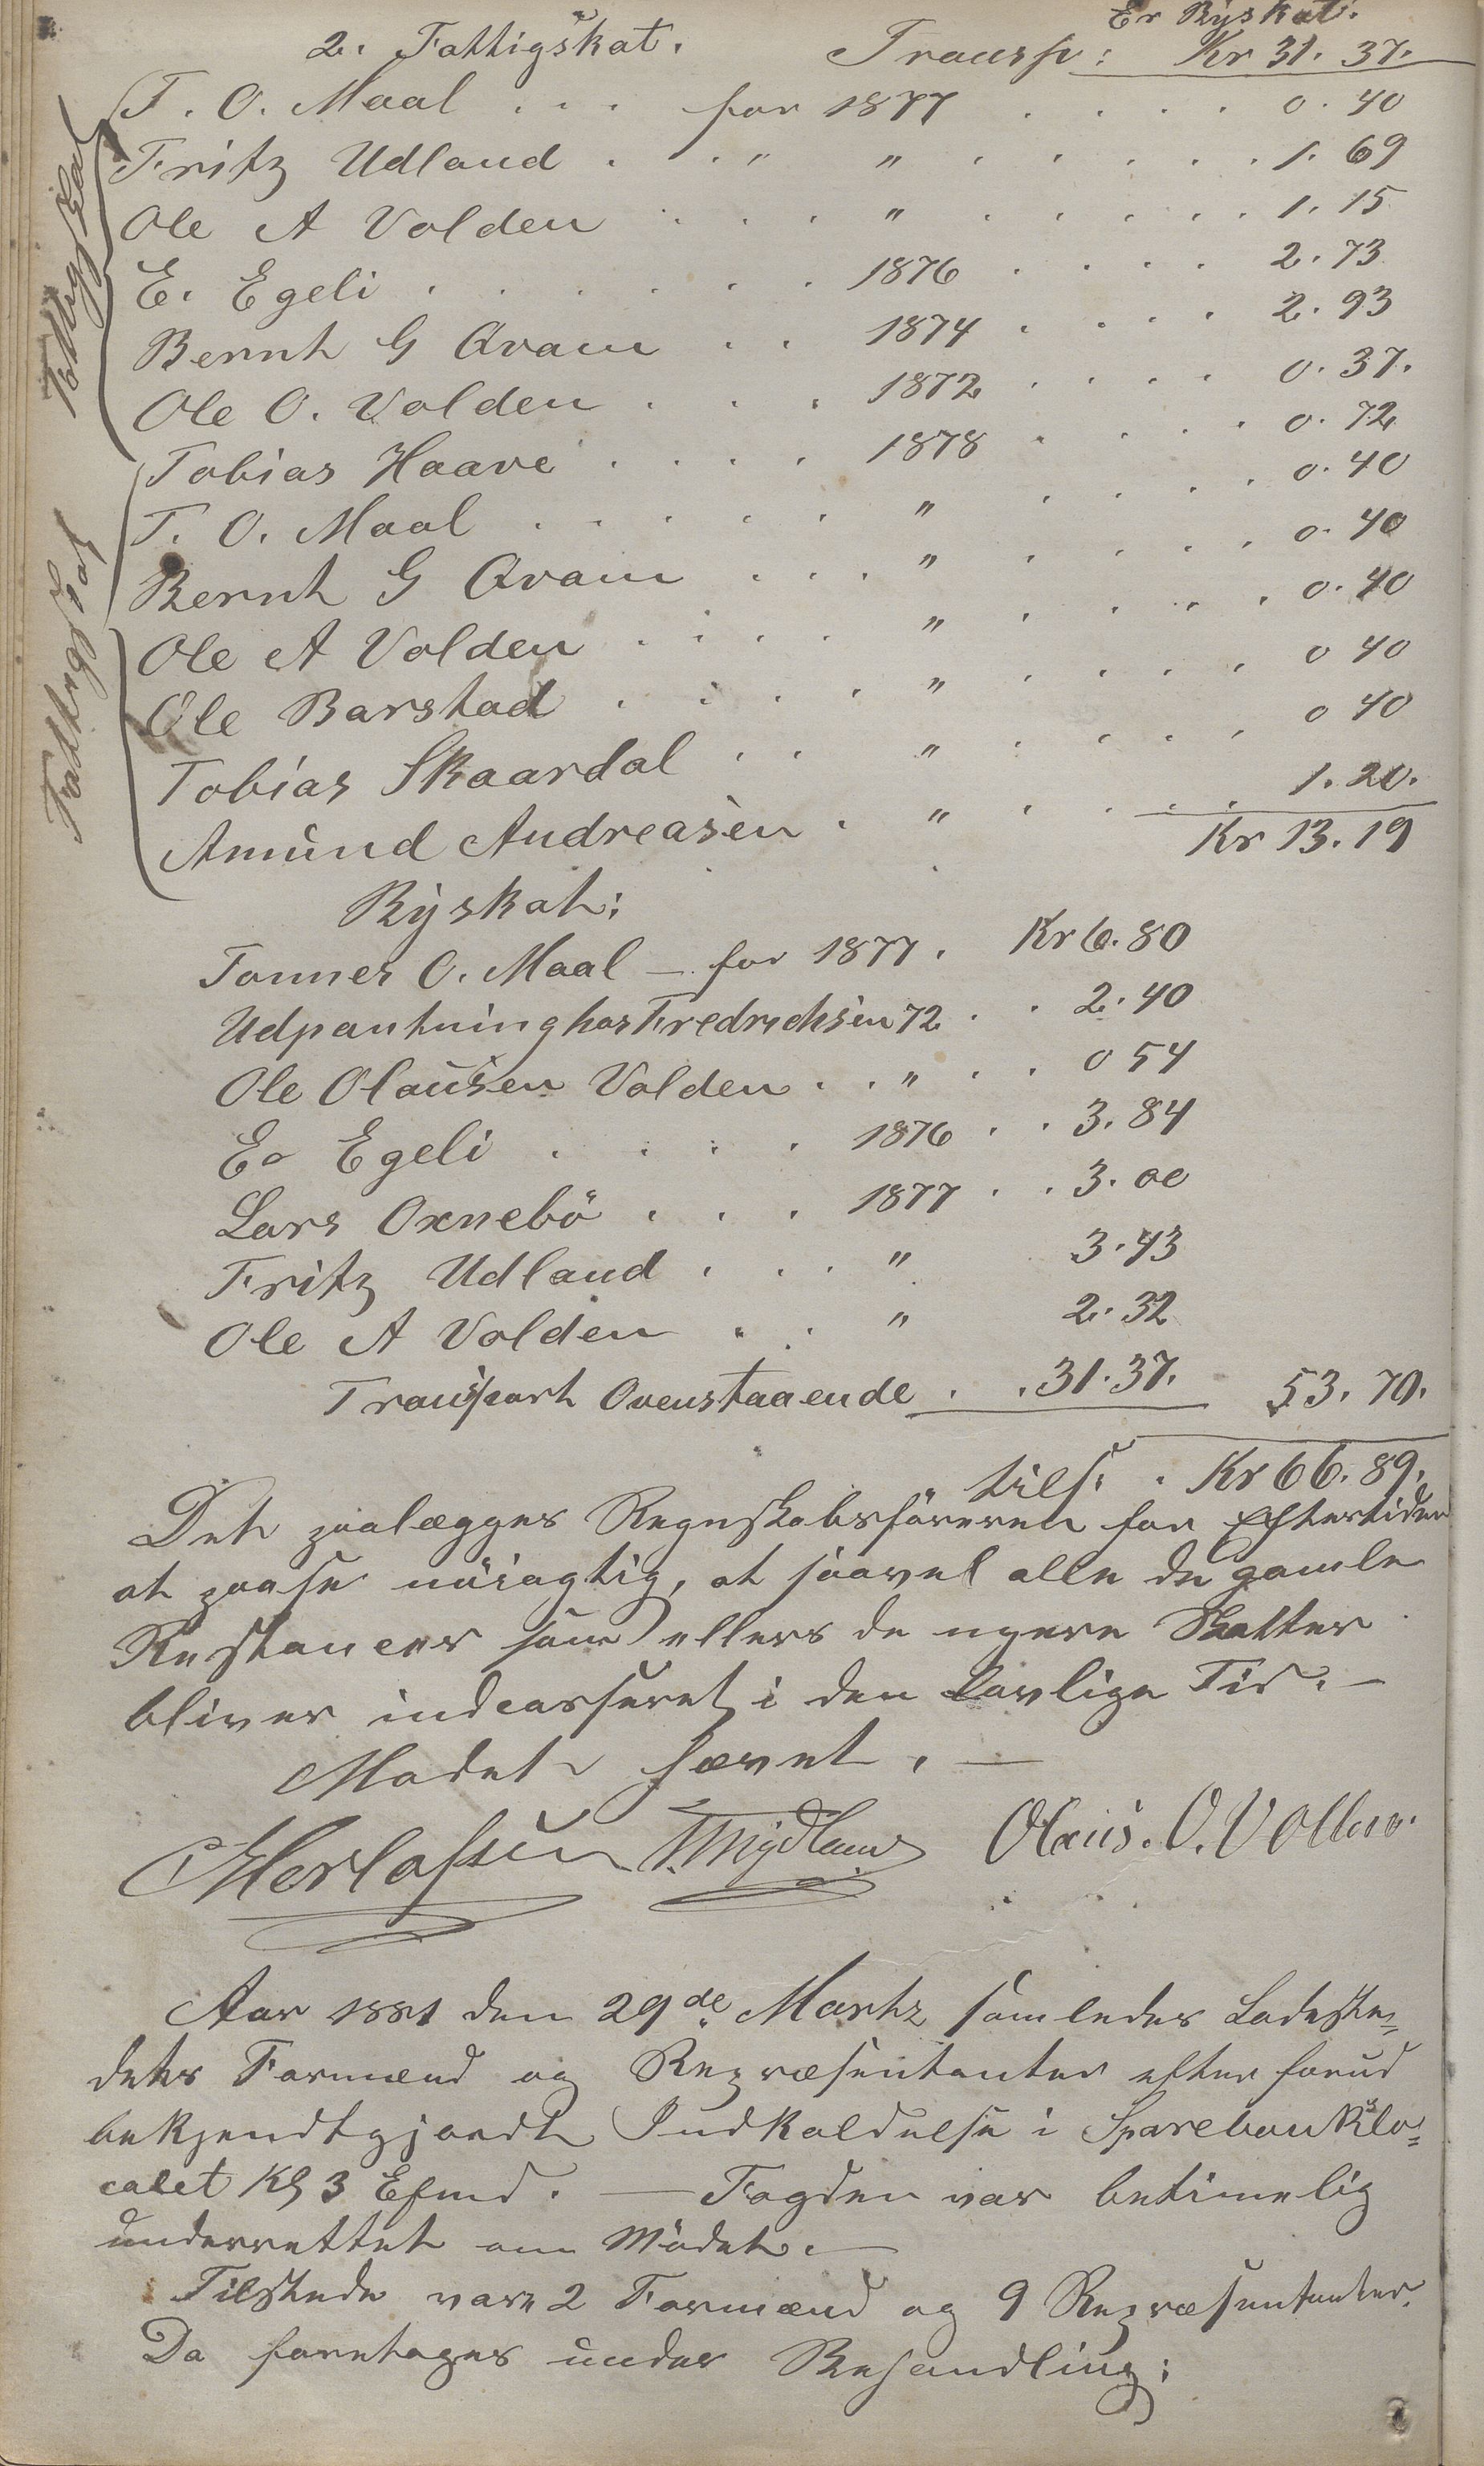 Er Byskat.
2. Fattigskat. Transp: Kr 31. 37.
T. O. Maal . . . for 1877 . . . . 0. 40
Fritz Udland . . " " . . . . . . 1. 69
Ole A Volden . . . " . . . . . . 1. 15
E. Egeli . . . . . . 1876 . . . . 2. 73
Bernt G Qvam . . 1874 . . . . 2. 93
Ole O. Volden . . . 1872 . . . . 0. 37.
Tobias Haave . . . . 1878 . . . . 0. 72
T. O. Maal . . . . . " . . . . 0. 40
Bernt G Qvam . . . " . . . . 0. 40
Ole A Volden . . . . " . . . . . 0. 40
Ole Barstad . . . . " . . . . 0 40
Tobias Skaardal . . " . . . . . 0 40
Amund Andreasen . " . . . . 1. 20.
Kr 13. 19
Fattigskat
Fattigskat
Byskat:
Tonnes O. Maal – for 1877 . Kr 6. 80
Udpantning hos Fredrichsen 72 . . 2. 40
Ole Olausen Volden . . " . . 0 54
E. Egeli . . . . 1876 . . 3. 84
Lars Oxnebö . . . 1877 . . 3. 00
Fritz Udland . . . " 3. 43
Ole A Volden . . " 2. 32
Transport Ovenstaaende . . 31. 37. 53. 70.
tils. . Kr 66. 89.
Det paalægges Regnskabsföreren for Eftertiden
at paase nöiagtig, at saavel alle de gamle
Restancer som ellers de nyere Skatter
bliver indcasseret i den lovlige Tid. —
Mödet hævet. —
Olaus. O. Volden.
Aar 1881 den 29de Martz samledes Ladeste=
dets Formænd og Repræsentanter efter forud
bekjendtgjordt Indkaldelse i Sparebanklo=
calet Kl 3 Efmd. — Fogden var betimelig
underrettet om Mödet. —
Tilstede vare 2 Formænd og 9 Repræsentanter.
Da foretages under Behandling: